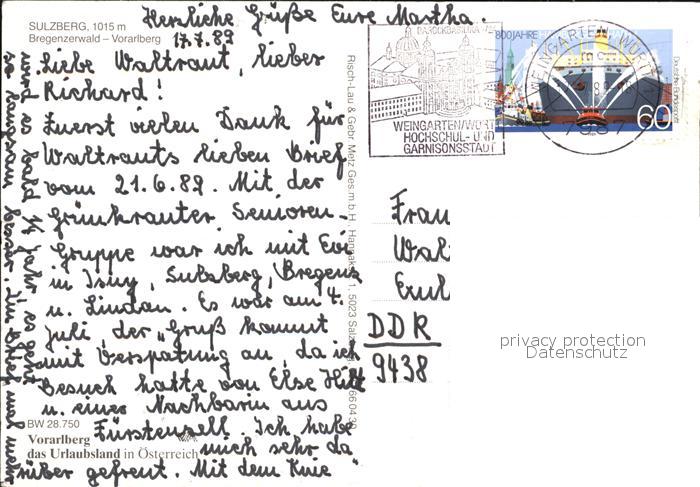 SULZBERG, 1015 m
Bregenzerwald – Vorarlberg
Herzliche Grüße Eure Martha.
17.7.89
Liebe Waltraut, lieber
Richard!
Zuerst vielen Dank für
Waltrauts lieben Brief
vom 21.6.89. Mit der
Grünkrauter Senioren-
Gruppe war ich mit Evi
in Isny, Sulzberg, Bregenz
u. Lindau. Es war am 4.
Juli, der "Gruß kommt
mit Verspätung an, da ich
Besuch hatte von Else Hilt
u. einer Nachbarin aus
Fürstenzell. Ich habe
mich sehr da
rüber gefreut. Mit dem Knie
wird es bald ½ Jahr, es geht
so langsam besser. Im Brief mal mehr
BW 28.750
Vorarlberg
das Urlaubsland in Österreich
Risch-Lau & Gebr. Metz Ges.m.b.H.
1, 5023
BAROCKBASILIKA
WEINGARTEN/WÜRTT
HOCHSCHUL- UND
GARNISONSSTADT
WEINGARTEN, WÜRTT
mc
7987
800 JAHRE
Deutsche Bundespost
60
Frau
Wal
DDR
9438
privacy protection
Datenschutz